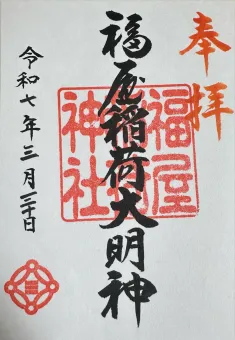 奉拝
福屋稲荷大明神
福屋
神社
令和七年三月日